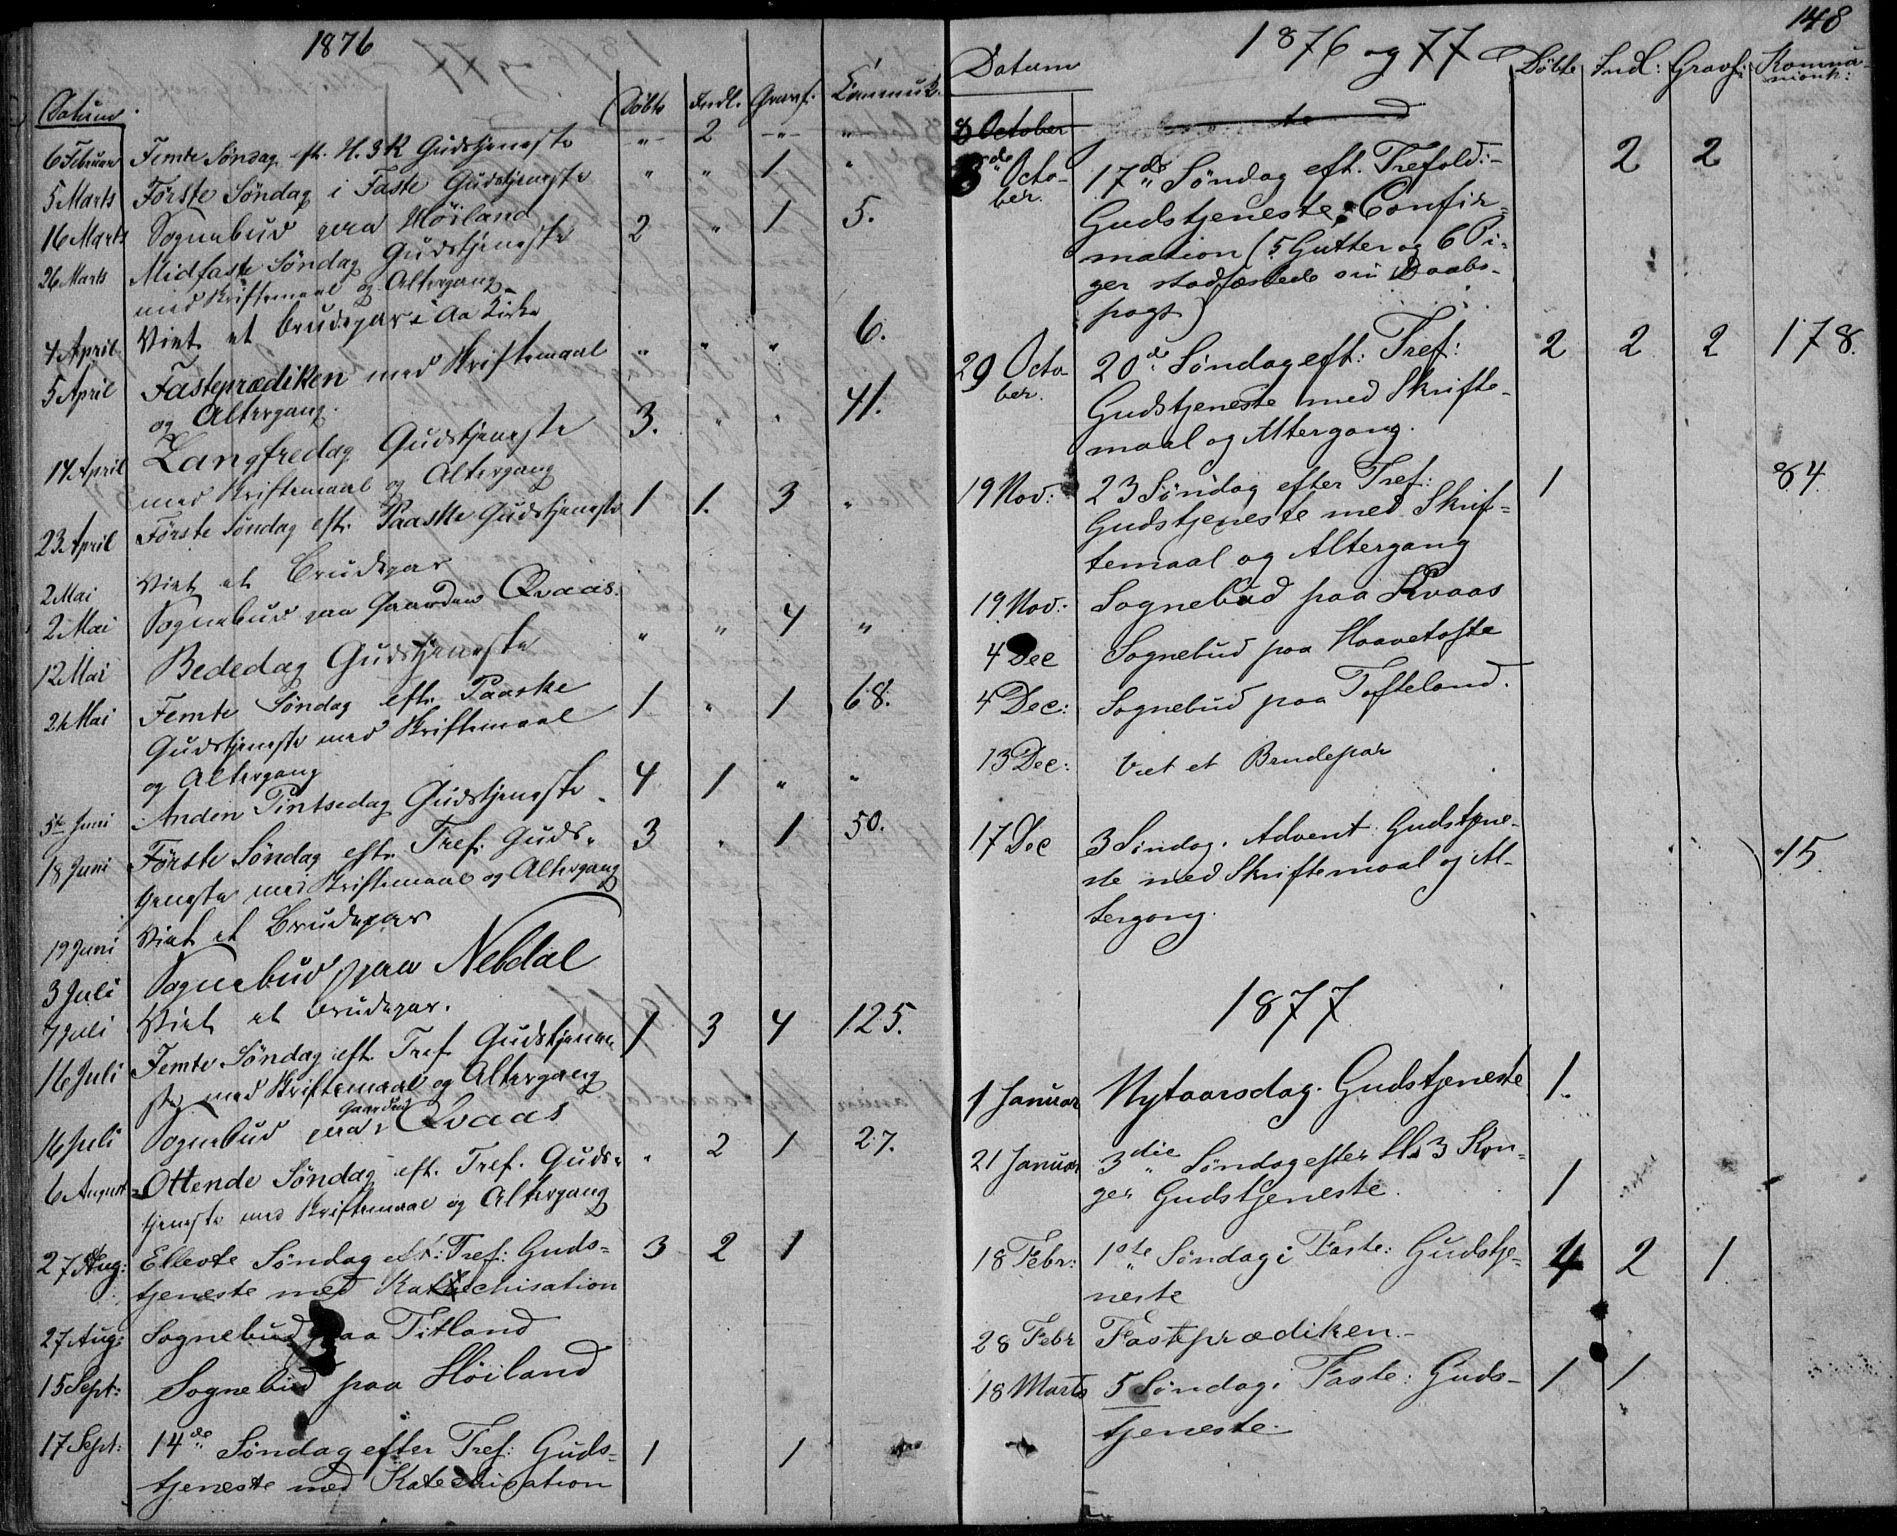 1876
Datum. Döbte Indl. Gravf. Communik.
6 Februar Femte Søndag eft. H. 3 K Gudstjeneste -"- 2 -"- "
5 Marts Første Søndag i Faste Gudstjeneste " " 1 "
16 Marts Sognebud paa Höiland
26 Marts Midfaste Søndag Gudstjeneste 2 " 1 5.
med Skriftemaal og Altergang
4 April Viet et Brudepar i Aa Kirke
5 April Fasteprædiken med Skriftemaal " " " 6.
og Altergang.
14 April Langfredag Gudstjeneste 3. " " 41.
med Skriftemaal og Altergang
23 April Første Søndag eft. Paaske Gudstjeneste 1 1. 3 "
2 Mai Viet et Brudepar
2 Mai Sognebud paa Gaarden Qvaas.
12 Mai Bededag Gudstjeneste " " 4 "
21 Mai Femte Søndag eft. Paaske 1 " 1 68.
Gudstjeneste med Skriftemaal
og Altergang
5te Juni Anden Pintsedag Gudstjeneste 4 1 " "
18 Juni Første Søndag eft. Tref. Guds- 3 " 1 50.
tjeneste med Skriftemaal og Altergang
19 Juni Viet et Brudepar
3 Juli Sognebud paa Nebdal
7 Juli Viet et Brudepar.
16 Juli Femte Søndag eft. Tref. Gudstjene- 1 3 4 125.
ste med Skriftemaal og Altergang
16 Juli Sognebud paa Gaarden Qvaas
6 August Ottende Søndag eft. Tref. Guds- " 2 1 27.
tjeneste med Skriftemaal og Altergang
27 Aug: Ellevte Søndag eft: Tref: Guds- 3 2 1
tjeneste med Katechisation
27 Aug: Sognebud paa Titland
15 Sept: Sognebud paa Höiland
17 Sept: 14de Søndag efter Tref: Guds- 1 1
tjeneste med Katechisation
148
1876 og 77
Datum Döbte Indl: Gravf: Kommu-
nionk:
8 October
8de Octo- 17de Søndag eft. Trefold:- 2 2
ber. Gudstjeneste, Confir-
mation (5 Gutter og 6 Pi-
ger stadfæstede sin Daabs-
pagt)
29 Octo- 20de Søndag eft: Tref: 2 2 2 178.
ber. Gudstjeneste med Skrifte-
maal og Altergang.
19 Nov: 23 Søndag efter Tref: 1 84.
Gudstjeneste med Skrif-
temaal og Altergang
19. Nov: Sognebud paa Kvaas
4 Dec Sognebud paa Haavetofte
4 Dec: Sognebud paa Tofteland.
13 Dec: Viet et Brudepar
17 Dec 3 Søndag i Advent Gudstjene- 15
ste med Skriftemaal og Al-
tergang.
1877
1 Januar Nytaarsdag. Gudstjeneste 1.
21 Januar 3die Søndag efter H. 3 Kon-
ger Gudstjeneste. 1
18 Febr: 1ste Søndag i Faste: Gudstje- 4 2 1
neste
28 Febr Fasteprædiken.-
18 Marts 5 Søndag i Faste: Guds- 1 1
tjeneste